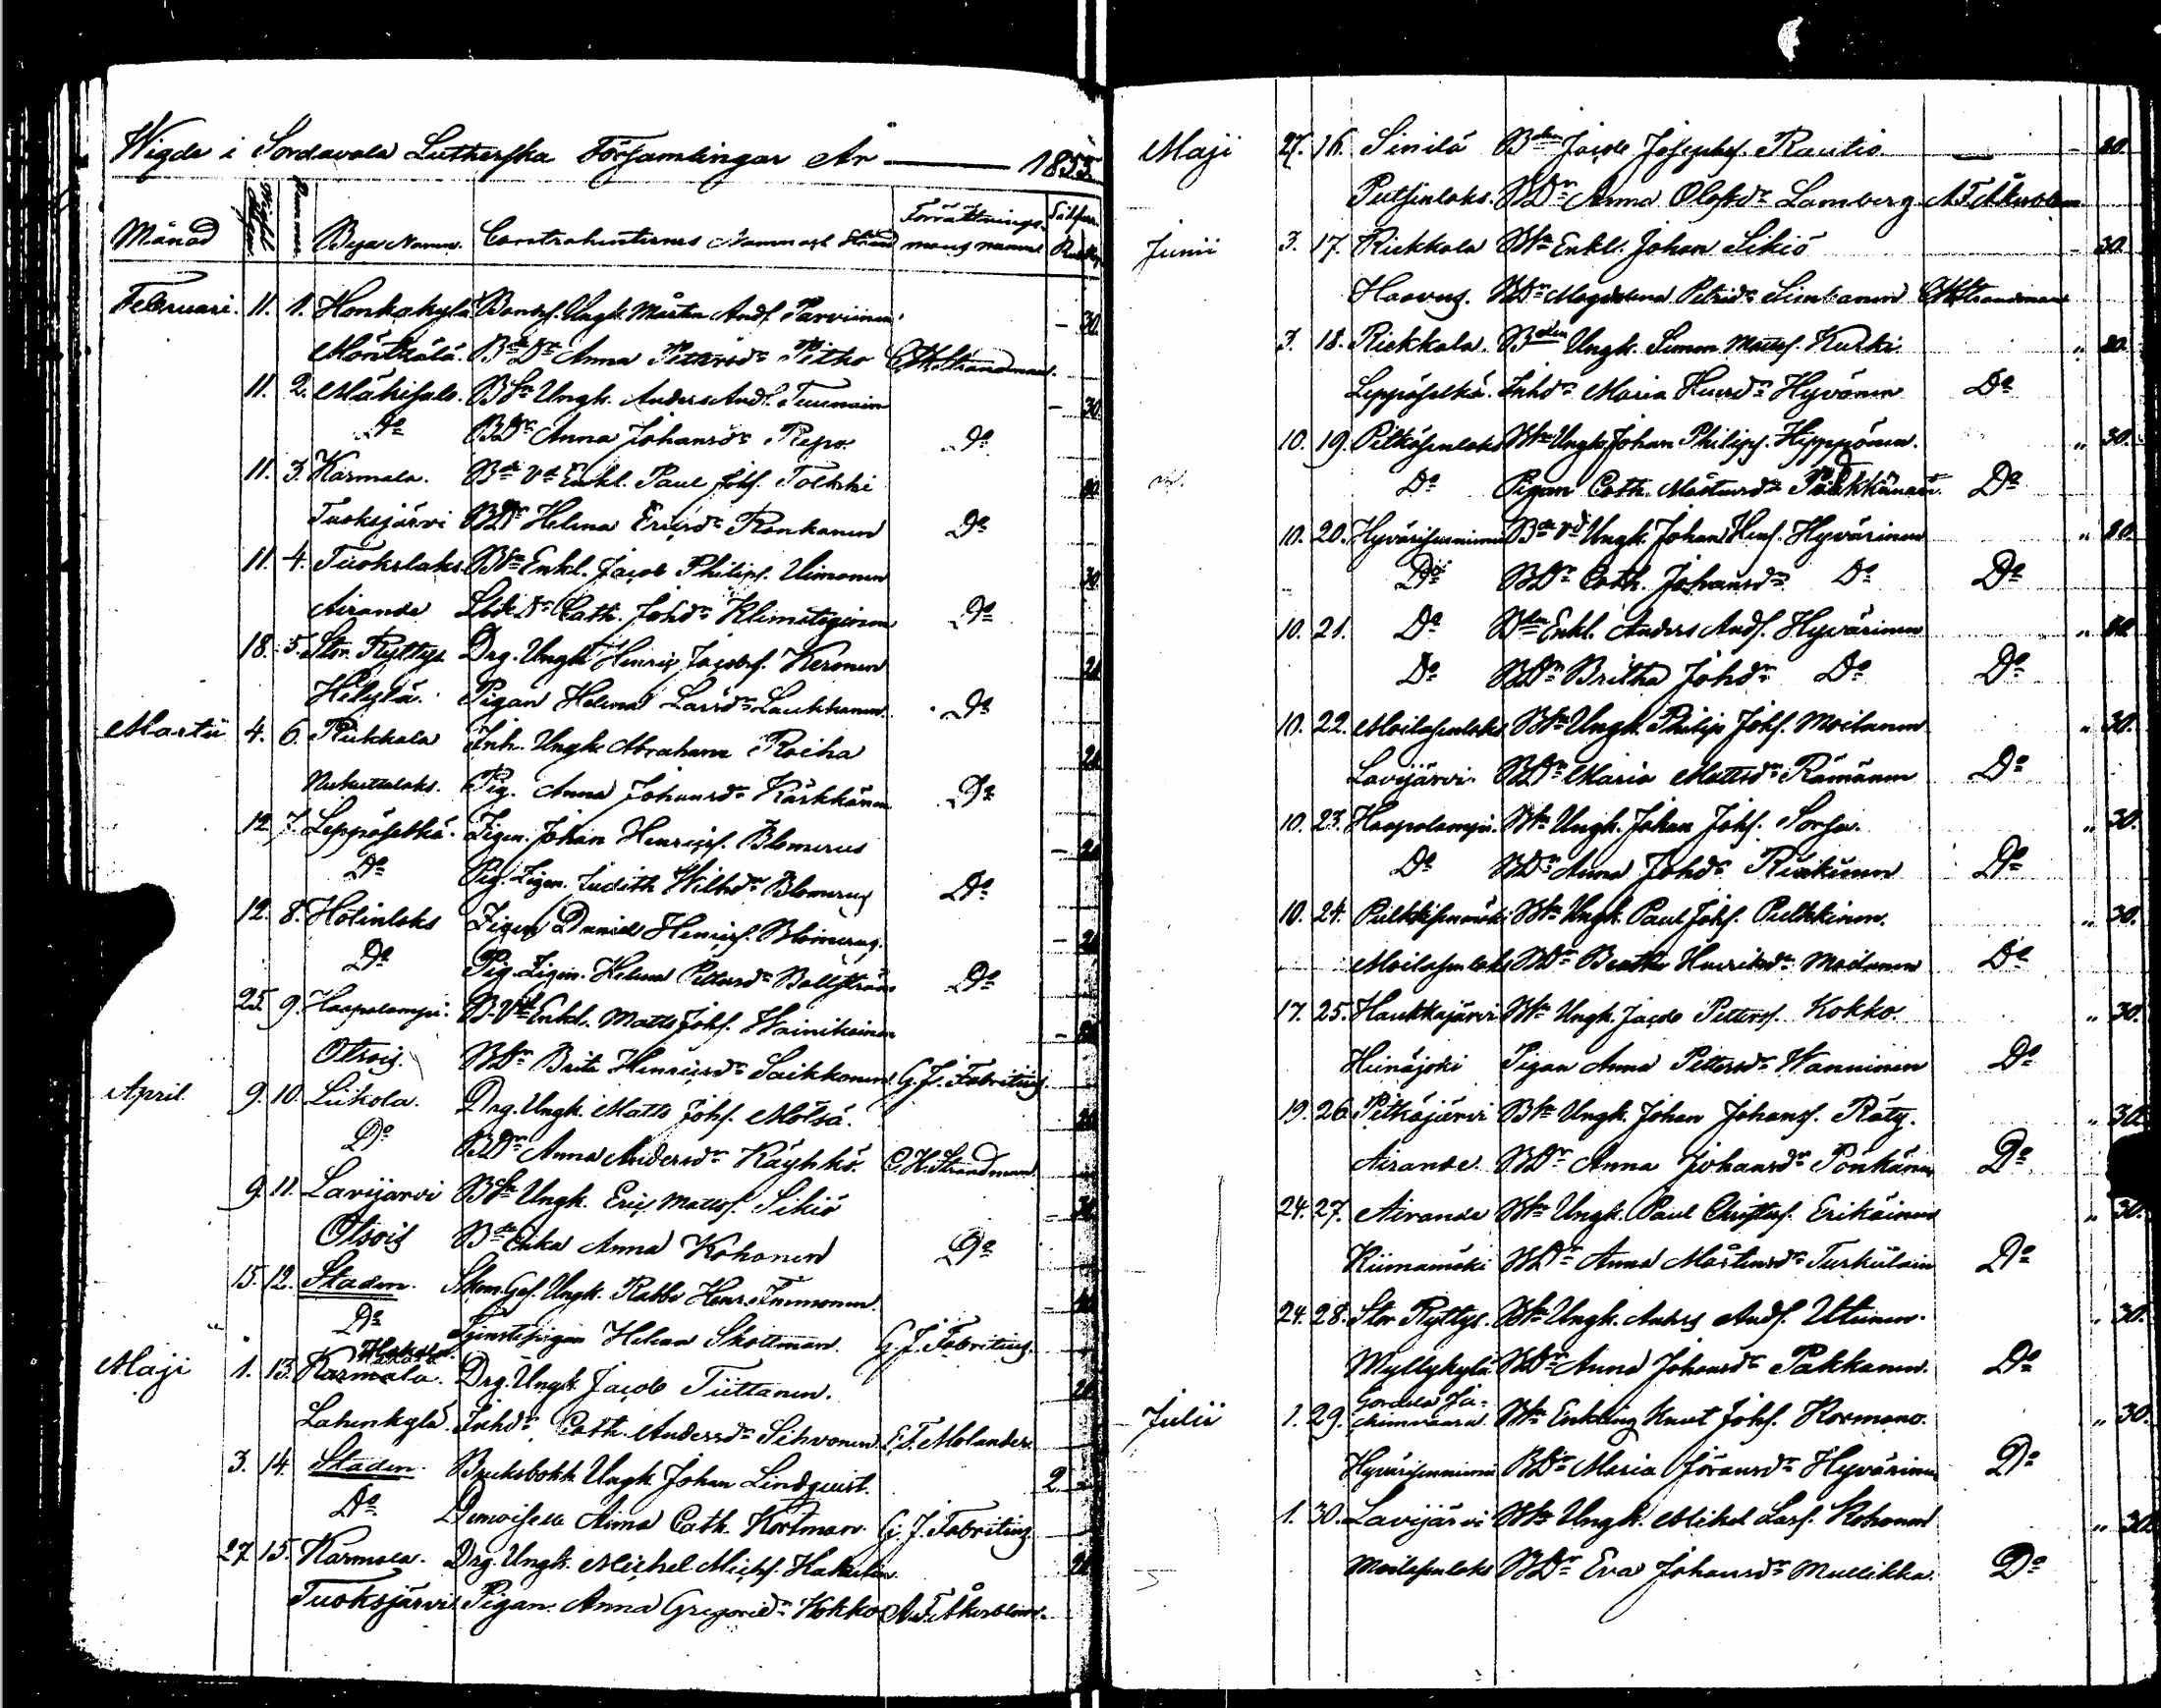 Wigde i Sordavala Lutherska Församlingar År — 1855.
Månad Bya Namn. Contrahenternes Namn och Stånd Förrättnings-mans namn
Februari. 11. 1. Honkakylä Bondes. Ungk. Mårten Ands. Parviainen – 30.
Mäntkälä. BdeDr Anna Pettersdr Pitko C.H. Strandman.
11. 2. Mäkisalo. BSn Ungk. Anders Ands. – 30.
Do BDr Anna Johansdr Repo. Do
11. 3. Karmala. Bde Vd Enkl. Paul Johs. Tolkki 20
Tuoksjärvi BDr Helena Ericsdr Ronkanen Do
11. 4. Tuokslaks. BSn Enkl. Jacob Philips. Uimonen 30
Airanda Cath. Johdr Do
18. 5. Stor Ryttys Drg. Ungk Henric Jacobs. Keronen 20
Helylä. Pigan Helena Larsdr Laukkanen. Do
Martii 4. 6. Riekkala Inh. Ungk Abraham Roiha 20
Pig. Anna Johansdr Kärkkänen Do
12. 7. Leppäselkä. Zigen. Johan Henrics. Blomerus – 20
Do Pig. Zigen. Judith Wilhdr Blomerus Do
12. 8. Hotinlaks Zigen Daniel Henrics. Blomerus. – 20
Do Pig. Zigen. Helena Pettersdr Do
25. 9. Haapalampi. B. Vd Enkl. Matts Johs. Wainikainen – 20
Otsois. BDr Brita Henricsdr Saikkonen G. J. Fabritius
April. 9. 10. Liikola. Drg. Ungk. Matts Johs. Mölsä. 20
Do BDr Anna Andersdr Käyhkö. C. H. Strandman.
9. 11. Lavijarvi BSn Ungk. Eric Matts. Sikiö – 30
Otsois Bde Enka Anna Kohonen Do
15. 12. Staden. Skom. Ges. Ungk. Rabbe Henr. Immonen.
Do Tjenstepigan Helena Skottman. G. J. Fabritius.
Maji 1. 13. Karmala. Hakala. Drg. Ungk. Jacob Tiittanen. 20
Lahenkylä Inhdr Cath. Andersdr Sihvonen E. F. Molander.
3. 14. Staden. Bruksbokh. Ungk Johan Lindquist. 2 –
Do Demoiselle Anna Cath. Kortman. G. J. Fabritius.
27. 15. Karmala. Drg. Ungk. Michel Michs. 20
Tuoksjärvi Pigan Anna Gregoridr Kokko A. F. Åkerblom.
Maji 27. 16. Sinilä Bden Jacob Josephs. Rautio. – 20.
Putsinlaks. BDr Anna Olofsdr Lamberg A. F. Åkerblom
Junii 3. 17. Riekkala BSn Enkl. Johan Sikiö – 30.
Haavus. BDr Magdalena Petridr Simkanen C.H. Strandman
3. 18. Riekkala. Bden Ungk. Simon Matts. Kurki. „ 20
Leppäselkä. Inhdr Maria Henrdr Hyvönen Do
10. 19. Pitkäsenlaks BSn Ungk Johan Philips. Hyppönen. „ 30.
Do Pigan Cath. Mårtensdr Do
10. 20. Hyvärisenniemi Bde Vd Ungk. Johan Hens. Hyvärinen „ 20.
Do BDr Cath. Johansdr Do Do
10. 21. Do Bden Enkl. Anders Ands. Hyvärinen „ 20
Do BDr Britha Johdr Do Do
10. 22. Moilasenlaks BSn Ungk. Philip Johs. Moilanen „ 30.
Lavijärvi. BDr Maria Mattsdr Rämänen Do
10. 23. Haapalampi. BSn Ungk. Johan Johs. Sorsa. „ 30.
Do BDr Anna Johdr Do
10. 24. Pulkkisenmäki BSn Ungk. Paul Johs. Pulkkinen. „ 30.
Moilasenlaks BDr Beatha Henriksdr Moilanen Do
17. 25. Haukkajärvi BSn Ungk. Jacob Petters. Kokko. „ 30.
Heinäjoki Pigan Anna Pettersdr Wanninen Do
19. 26. Pitkäjärvi BSn Ungk. Johan Johans. Räty. „ 30.
Airanda. BDr Anna Johansdr Pönkänen Do
24. 27. Airanda BSn Ungk. Paul Christers. Erikäinen „ 30.
Kiimamäki BDr Anna Mårtensdr Turkulain Do
24. 28. Stor Ryttys. BSn Ungk. Anders Ands. Uttunen. „ 30.
Myllykylä BDr Anna Johansdr Pakkanen. Do
Julii 1. 29. BSn Enkling Knut Johs. Kormano. „ 30.
Hyvärisenniemi BDr Maria Göransdr Hyvärinen Do
1. 30. Lavijärvi BSn Ungk. Mikel Lars. Kohonen „ 30.
Moilasenlaks BDr Eva Johansdr Mullikka. Do